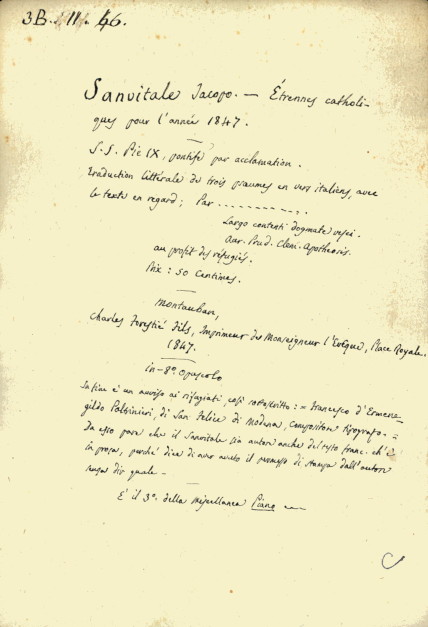 3B. II. 46.
Sanvitale Jacopo. — Étrennes catholi-
ques pour l'année 1847.
S. S. Pie IX, pontife par acclamation.
Traduction littérale de trois psaumes en vers italiens, avec
le texte en regard; Par ..........
Largo contenti dogmate vesci.
Aur. Prud. Clem. Apotheosis.
au profit des réfugiés.
Prix : 50 Centimes.
Montauban,
Charles Forestié fils, Imprimeur de Monseigneur l'Evêque, Place Royale.
1847.
in-8º. Opuscolo
In fine è un avviso ai rifugiati, così sottoscritto: = Francesco d'Ermene-
gildo Paltrinieri, di San Felice di Modena, compositore tipografo. =
Da esso pare che il Sanvitale sia autore anche del resto franc. ch'è
in prosa, perché dice di aver avuto il permesso di stampa dall'autore
senza dir quale —
È il 3º. della Miscellanea Piano